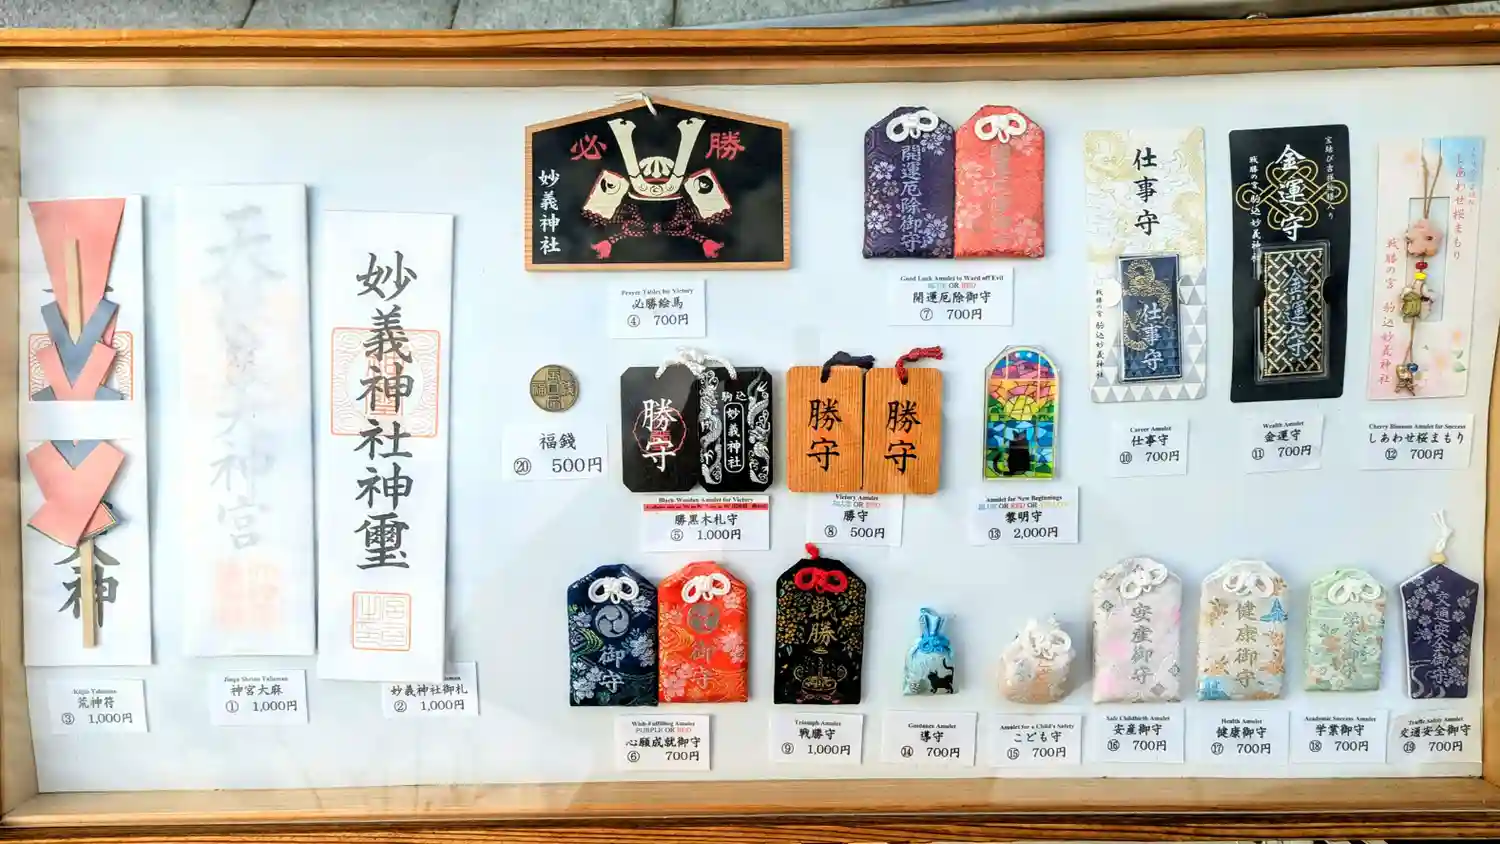 必勝
妙義神社
Prayer Tablet for Victory
必勝絵馬
④ 700円
開運厄除御守
Good Luck Amulet to Ward off Evil
BLUE OR RED
開運厄除御守
⑦ 700円
仕事守
仕事守
戦勝の宮 駒込妙義神社
Career Amulet
仕事守
⑩ 700円
金運守
金運守
戦勝の宮 駒込妙義神社
Wealth Amulet
金運守
⑪ 700円
しあわせ桜まもり
戦勝の宮 駒込妙義神社
Cherry Blossom Amulet for Success
しあわせ桜まもり
⑫ 700円
福錢
⑳ 500円
勝守
駒込
妙義神社
Black Wooden Amulet for Victory
勝黒木札守
⑤ 1,000円
勝守
勝守
Victory Amulet
BLUE OR RED
勝守
⑧ 500円
Amulet for New Beginnings
BLUE OR RED OR YELLOW
黎明守
⑬ 2,000円
御守
御守
Wish-Fulfilling Amulet
PURPLE OR RED
心願成就御守
⑥ 700円
戦勝
Triumph Amulet
戦勝守
⑨ 1,000円
Guidance Amulet
導守
⑭ 700円
Amulet for a Child's Safety
こども守
⑮ 700円
安産御守
Safe Childbirth Amulet
安産御守
⑯ 700円
健康御守
Health Amulet
健康御守
⑰ 700円
学業御守
Academic Success Amulet
学業御守
⑱ 700円
交通安全御守
Traffic Safety Amulet
交通安全御守
⑲ 700円
大神
Kojin Talisman
荒神符
③ 1,000円
天照皇大神宮
Jingu Shrine Talisman
神宮大麻
① 1,000円
妙義神社神璽
妙義神社御札
② 1,000円